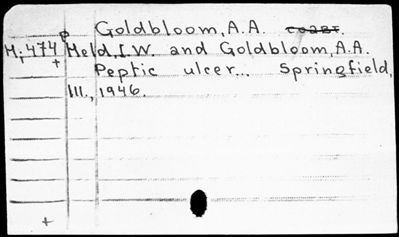 Goldbloom, A.A.
p
M; 474 Held, I.W. and Goldbloom, A.A.
Peptic ulcer... Springfield,
Ill., 1946.